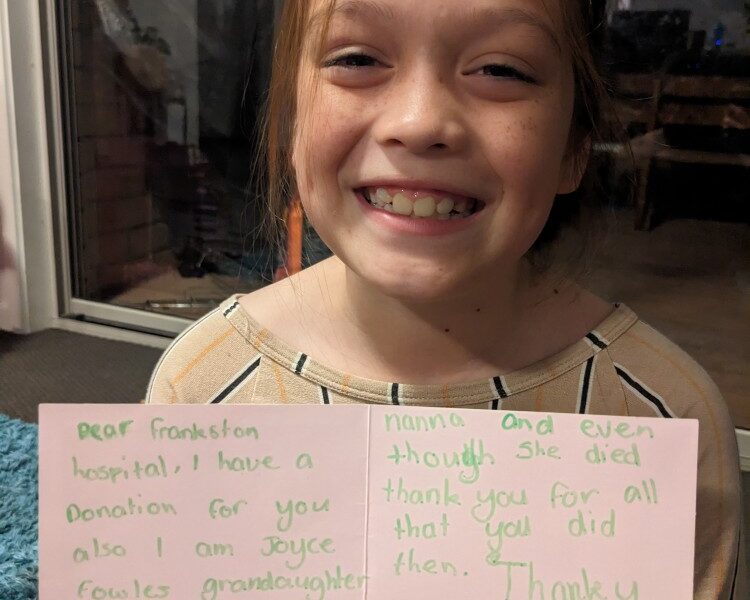 Dear frankston
hospital, I have a
Donation for you
also I am Joyce
fowles grandaughter
nanna and even
though she died
thank you for all
that you did
then.
Thanky